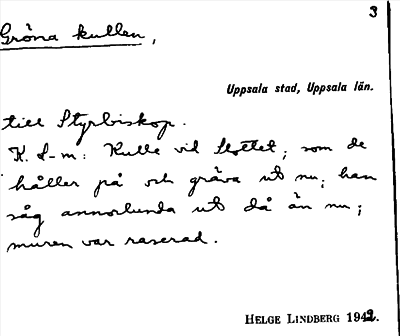 3
Gröna kullen,
Uppsala stad, Uppsala län.
till Styrbiskop.
K. S-m: Kulle vid Slottet; som de
håller på och gräva ut nu; han
såg annorlunda ut då än nu;
muren var raserad.
HELGE LINDBERG 1942.